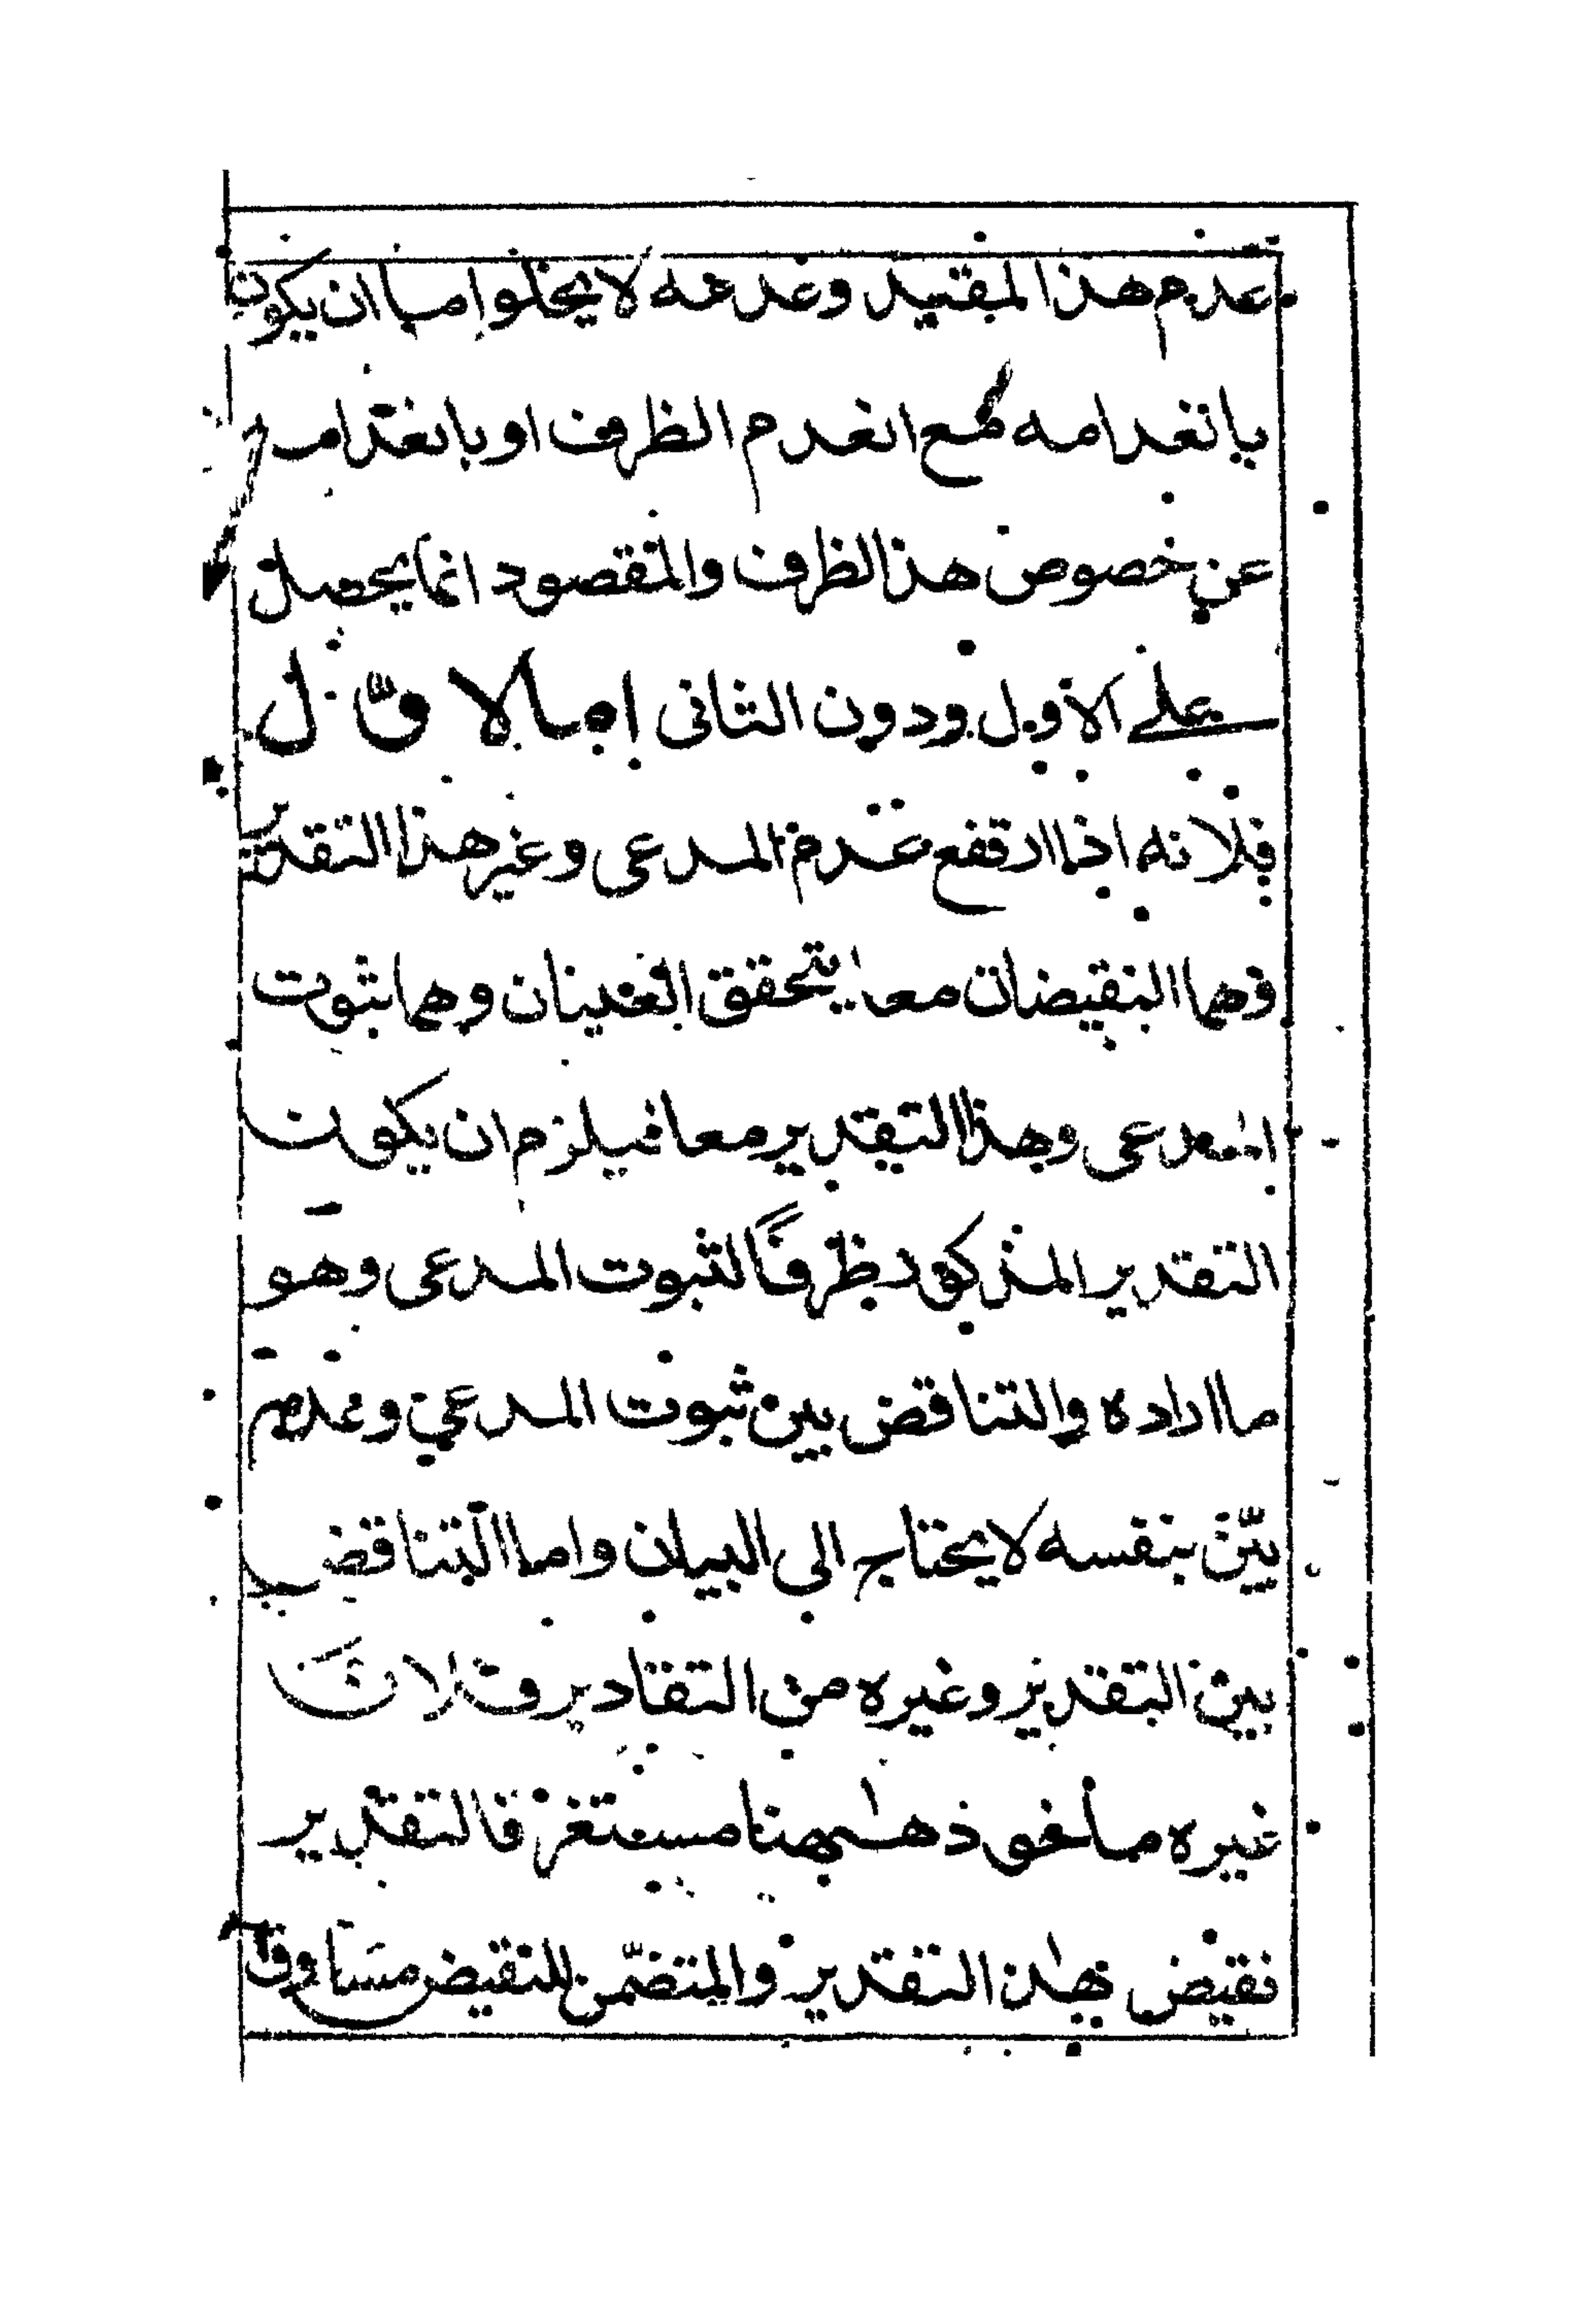 عدم هذا المقيد وعدمه لا يخلوا ما ان يكون
بانعدامه مع انعدم الظرف او بانعدام
عن خصوص هذا الظرف والمقصود انما يحصل
على الاول ودون الثانى اما الاوّل
فلانه اذا ارتفع عدم المدعى وغير هذا التقدير
وهما النقيضان معا يتحقق العينان وهما ثبوت
المدعى وهذا التقدير معا فيلزم ان يكون
التقدير المذكور ظرفًا لثبوت المدعى وهو
ما اراده والتناقض بين ثبوت المدعى وعدمه
بيّن بنفسه لا يحتاج الى البيان واما التناقض
بين التقدير وغيره من التقادير فلان
غيره ماخوذ ههنا مستغرقا لتقدير
نقيض هذا التقدير والمتضمّن للنقيض مساوق